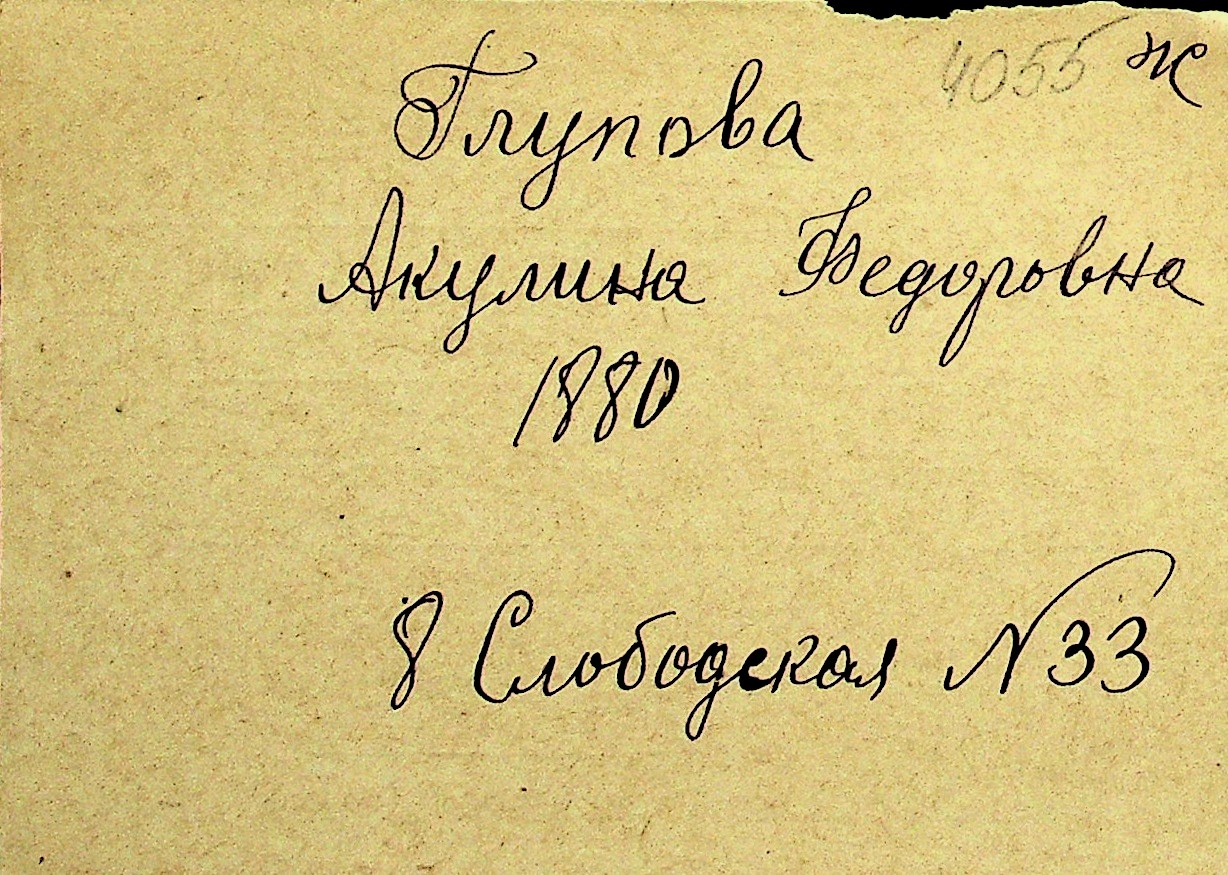 4055 ж
Глупова
Акулина Федоровна
1880
8 Слободская N 33